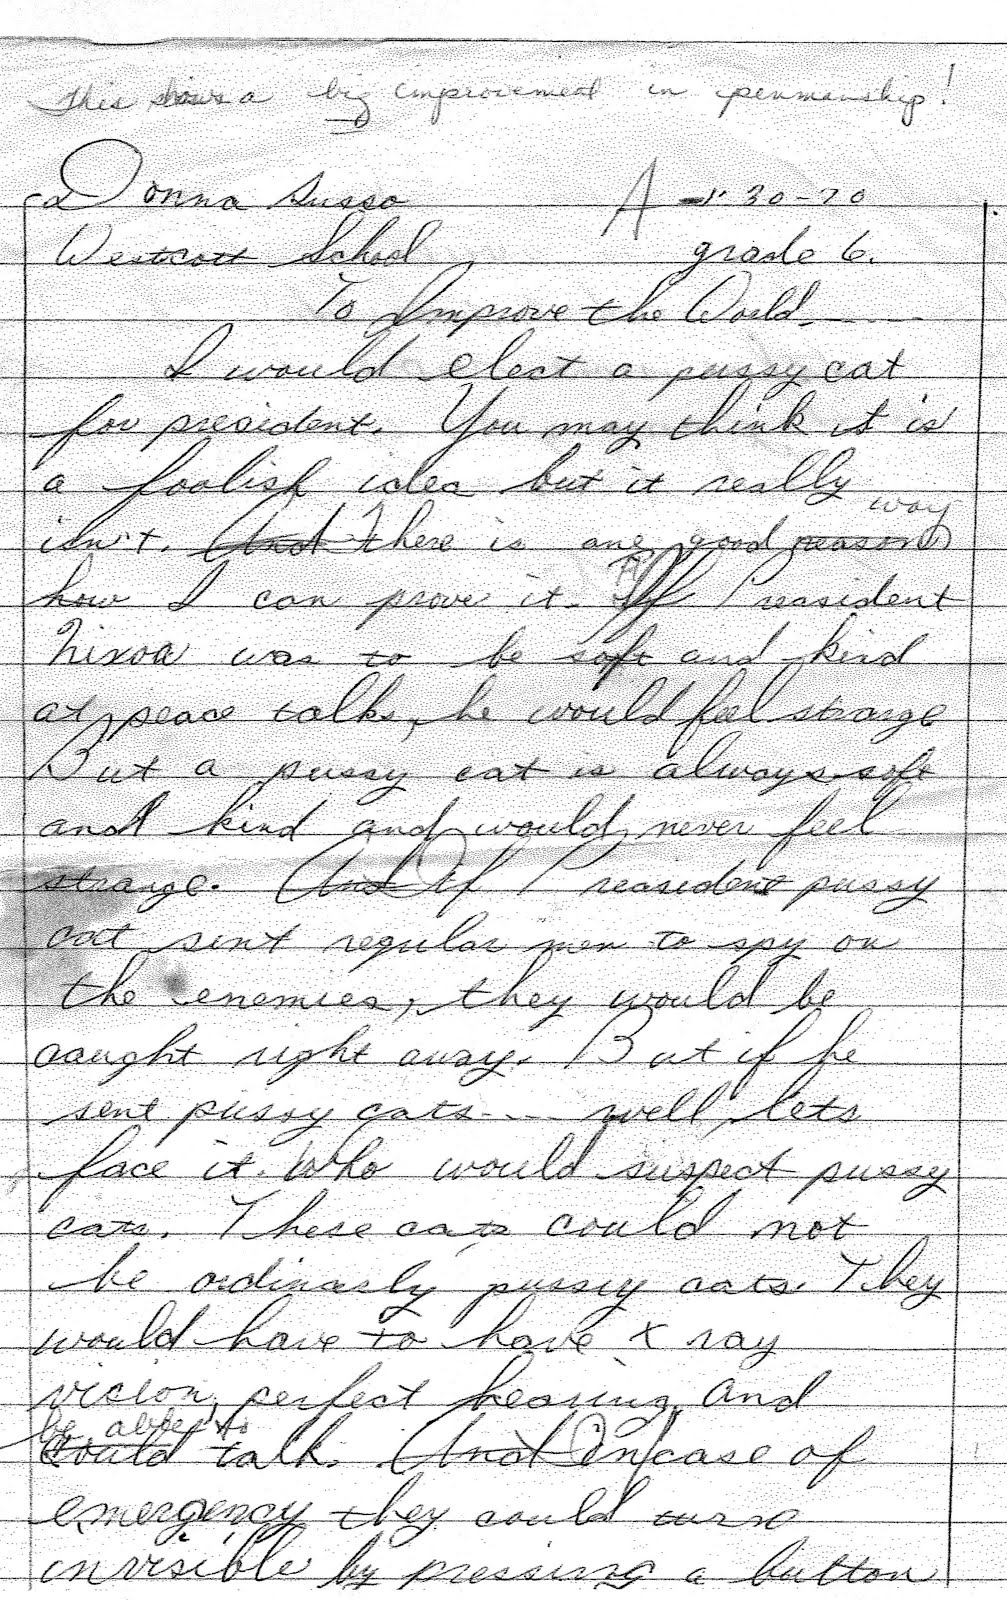 This shows a big improvement in penmanship!
Donna Russo A 1-30-70
Westcott School grade 6.
To Improve the World-----
I would elect a pussy cat
for president. You may think it is
a foolish idea but it really
way
isn't. And There is one good reason
how I can prove it. If Preasident
Nixon was to be soft and kind
at peace talks, he would feel strange
But a pussy cat is always soft
and kind and would never feel
strange. And If Preasident pussy
cat sent regular men to spy on
the enemies, they would be
caught right away. But if he
sent pussy cats---- well lets
face it. Who would suspect pussy
cats. These cats could not
be ordinarly pussy cats. They
would have to have x ray
vision, perfect hearing, and
be able to
could talk. And In case of
emergency they could turn
invisible by pressing a button